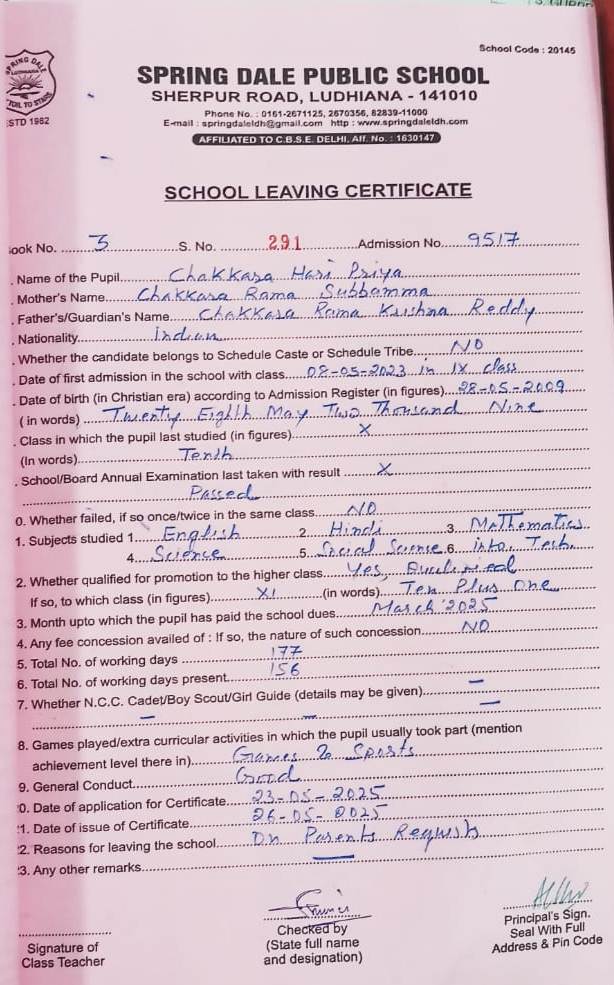 School Code : 20145
SPRING DALE
LUDHIANA
TOIL TO STARS
ESTD 1982
SPRING DALE PUBLIC SCHOOL
SHERPUR ROAD, LUDHIANA - 141010
Phone No. : 0161-2671125, 2670356, 82839-11000
E-mail : springdaleldh@gmail.com http : www.springdaleldh.com
AFFILIATED TO C.B.S.E. DELHI, Aff. No. : 1630147
SCHOOL LEAVING CERTIFICATE
ook No. 3 S. No. 291 Admission No. 9517
. Name of the Pupil Chakkara Hari Priya
. Mother's Name Chakkara Rama Subbamma
. Father's/Guardian's Name Chakkara Rama Krishna Reddy
. Nationality Indian
. Whether the candidate belongs to Schedule Caste or Schedule Tribe NO
. Date of first admission in the school with class 08-05-2023 in IX class
. Date of birth (in Christian era) according to Admission Register (in figures) 28-05-2009
( in words) Twenty Eighth May Two Thousand Nine
. Class in which the pupil last studied (in figures) X
(In words) Tenth
. School/Board Annual Examination last taken with result X
Passed
0. Whether failed, if so once/twice in the same class NO
1. Subjects studied 1. English 2. Hindi 3. Mathematics
4. Science 5. Social Science 6. Info. Tech.
2. Whether qualified for promotion to the higher class Yes,
If so, to which class (in figures) XI (in words) Ten Plus One
3. Month upto which the pupil has paid the school dues March 2025
4. Any fee concession availed of : If so, the nature of such concession NO
5. Total No. of working days 177
6. Total No. of working days present 156
7. Whether N.C.C. Cadet/Boy Scout/Girl Guide (details may be given) —
— — —
8. Games played/extra curricular activities in which the pupil usually took part (mention
achievement level there in) Games & Sports
9. General Conduct Good
0. Date of application for Certificate 23-05-2025
1. Date of issue of Certificate 26-05-2025
2. Reasons for leaving the school On Parents Request
3. Any other remarks —
Signature of
Class Teacher
Checked by
(State full name
and designation)
Principal's Sign.
Seal With Full
Address & Pin Code